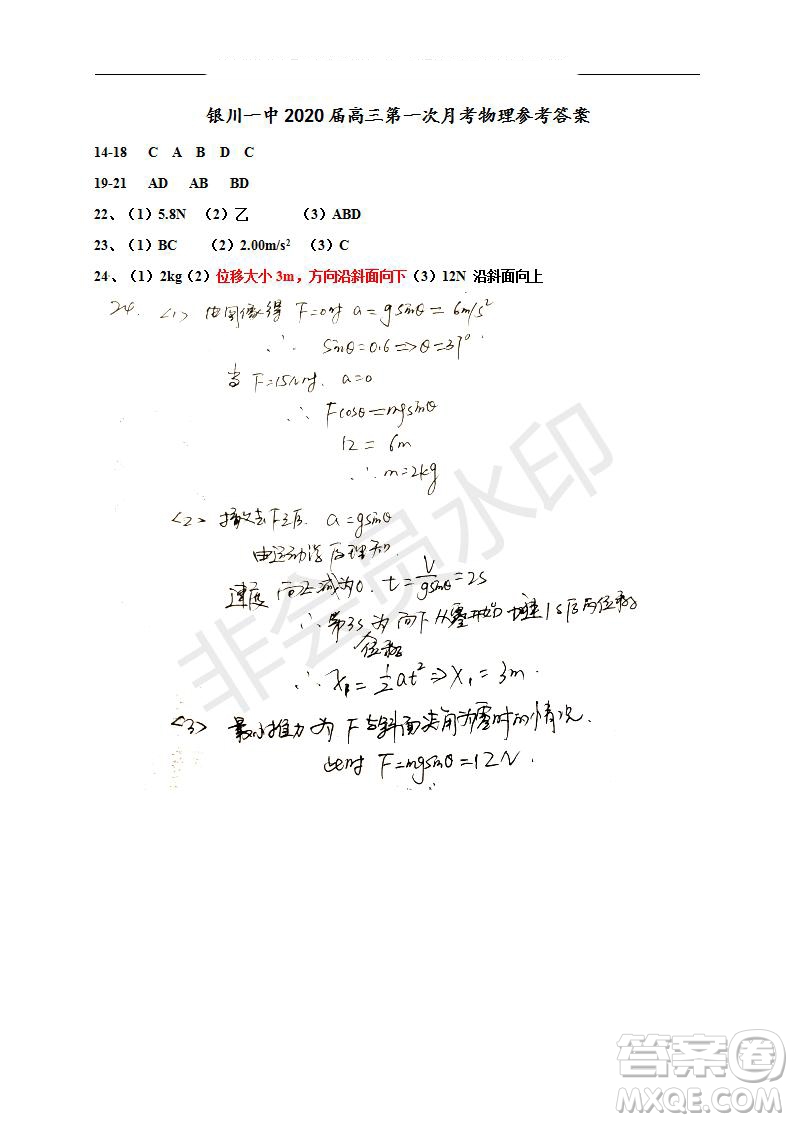 银川一中2020届高三第一次月考物理参考答案
14-18 C A B D C
19-21 AD AB BD
22、（1）5.8N （2）乙 （3）ABD
23、（1）BC （2）2.00m/s² （3）C
24、（1）2kg（2）位移大小3m，方向沿斜面向下（3）12N 沿斜面向上
24. <1> 由图像得 F=0时 a=gsinθ=6m/s²
∴ sinθ=0.6⇒θ=37°
当F=15N时. a=0
∴ Fcosθ=mgsinθ
12=6m
∴m=2kg
<2> 撤去F之后. a=gsinθ
由运动学原理知.
速度向上减为0. t=V/gsinθ=2S
∴第3S为向下从零开始加速1s后的位移
位移
∴x₁=½at²⇒x₁=3m.
<3> 最小推力为F与斜面夹角为零时的情况.
此时F=mgsinθ=12N.
非会员水印
答案卷
MXQE.COM